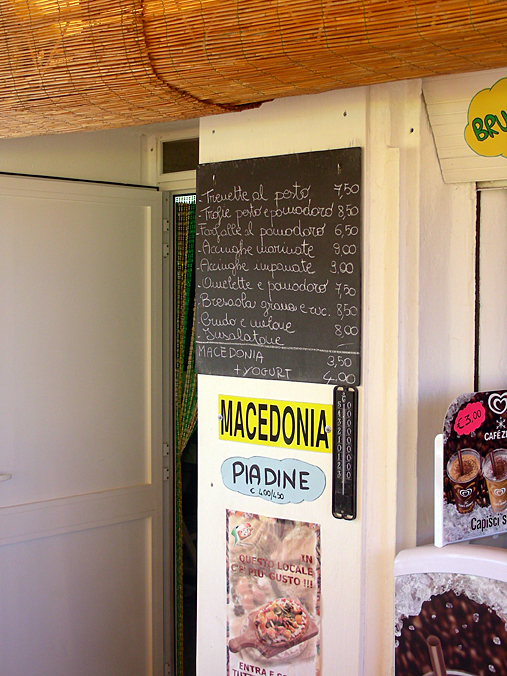 BRU
-Trenette al pesto 7,50
-Trofie pesto e pomodoro 8,50
-Farfalle al pomodoro 6,50
-Acciughe marinate 9,00
-Acciughe impanate 9,00
-Omelette e pomodoro 7,50
-Bresaola grana e ruc. 8,50
-Crudo e melone 8,00
-Insalatone
MACEDONIA 3,50
+YOGURT 4,00
MACEDONIA
PIADINE
€ 4,00/4,50
IN
QUESTO LOCALE
C'È PIÙ GUSTO !!!
ENTRA E
€3,00
CAFÉZE
Capisci s